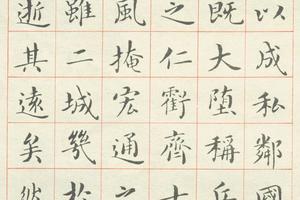 以成私鄰國
既大墮稱兵
之仁虧齊士
風掩宏通之
雖二城幾於
逝其遠矣然